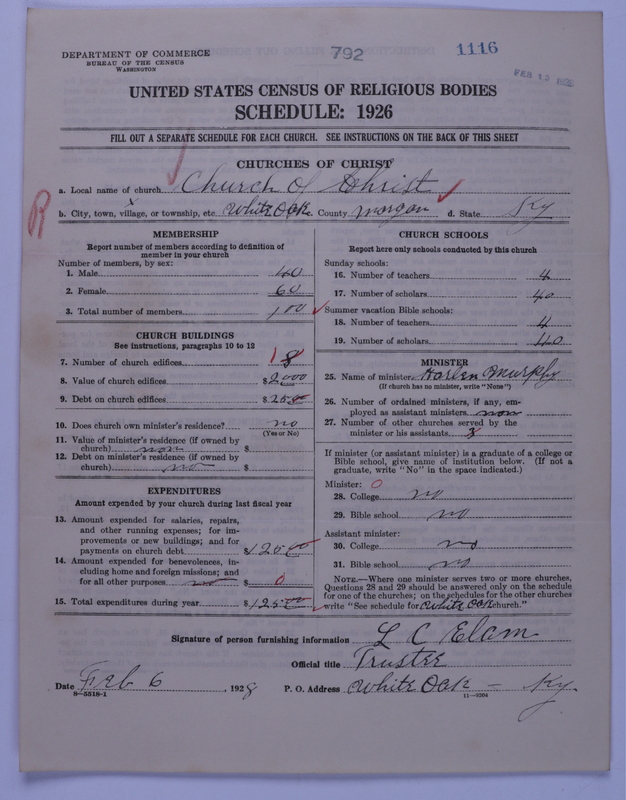 DEPARTMENT OF COMMERCE
BUREAU OF THE CENSUS
WASHINGTON
792
1116
FEB 13
UNITED STATES CENSUS OF RELIGIOUS BODIES
SCHEDULE: 1926
FILL OUT A SEPARATE SCHEDULE FOR EACH CHURCH. SEE INSTRUCTIONS ON THE BACK OF THIS SHEET
CHURCHES OF CHRIST
a. Local name of church Church of Christ
R
b. City, town, village, or township, etc. White Oak c. County Morgan d. State Ky
MEMBERSHIP
Report number of members according to definition of
member in your church
Number of members, by sex:
1. Male 40
2. Female 60
3. Total number of members 100
CHURCH BUILDINGS
See instructions, paragraphs 10 to 12
7. Number of church edifices 1
8. Value of church edifices $2000
9. Debt on church edifices $25
10. Does church own minister's residence? no
(Yes or No)
11. Value of minister's residence (if owned by
church) non $
12. Debt on minister's residence (if owned by
church) no $
EXPENDITURES
Amount expended by your church during last fiscal year
13. Amount expended for salaries, repairs,
and other running expenses; for im-
provements or new buildings; and for
payments on church debt $125 00
14. Amount expended for benevolences, in-
cluding home and foreign missions; and
for all other purposes no $ 0
15. Total expenditures during year $125 00
CHURCH SCHOOLS
Report here only schools conducted by this church
Sunday schools:
16. Number of teachers 4
17. Number of scholars 40
Summer vacation Bible schools:
18. Number of teachers 4
19. Number of scholars 40
MINISTER
25. Name of minister Harlen Murphy
(If church has no minister, write "None")
26. Number of ordained ministers, if any, em-
ployed as assistant ministers non
27. Number of other churches served by the
minister or his assistants 3
If minister (or assistant minister) is a graduate of a college or
Bible school, give name of institution below. (If not a
graduate, write "No" in the space indicated.)
Minister: 0
28. College no
29. Bible school no
Assistant minister:
30. College no
31. Bible school no
NOTE.—Where one minister serves two or more churches,
Questions 28 and 29 should be answered only on the schedule
for one of the churches; on the schedules for the other churches
write "See schedule for White Oak church."
Signature of person furnishing information L C Elam
Official title Trustee
Date Feb 6, 1928 P. O. Address White Oak - Ky.
8-5518-1
11-9304